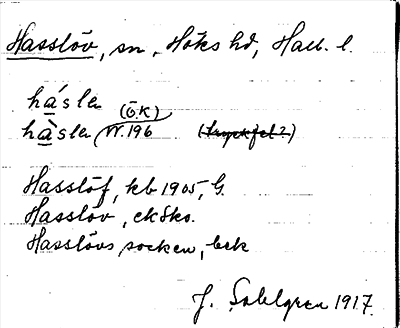 Hasslöv, sn, Höks hd, Hall. l.
hásla
(Ö.K)
hàsla VI.196 (tryckfel?)
Hasslöf, kb 1905, G.
Hasslöv, ekSko.
Hasslövs socken, bek
J. Sahlgren 1917.